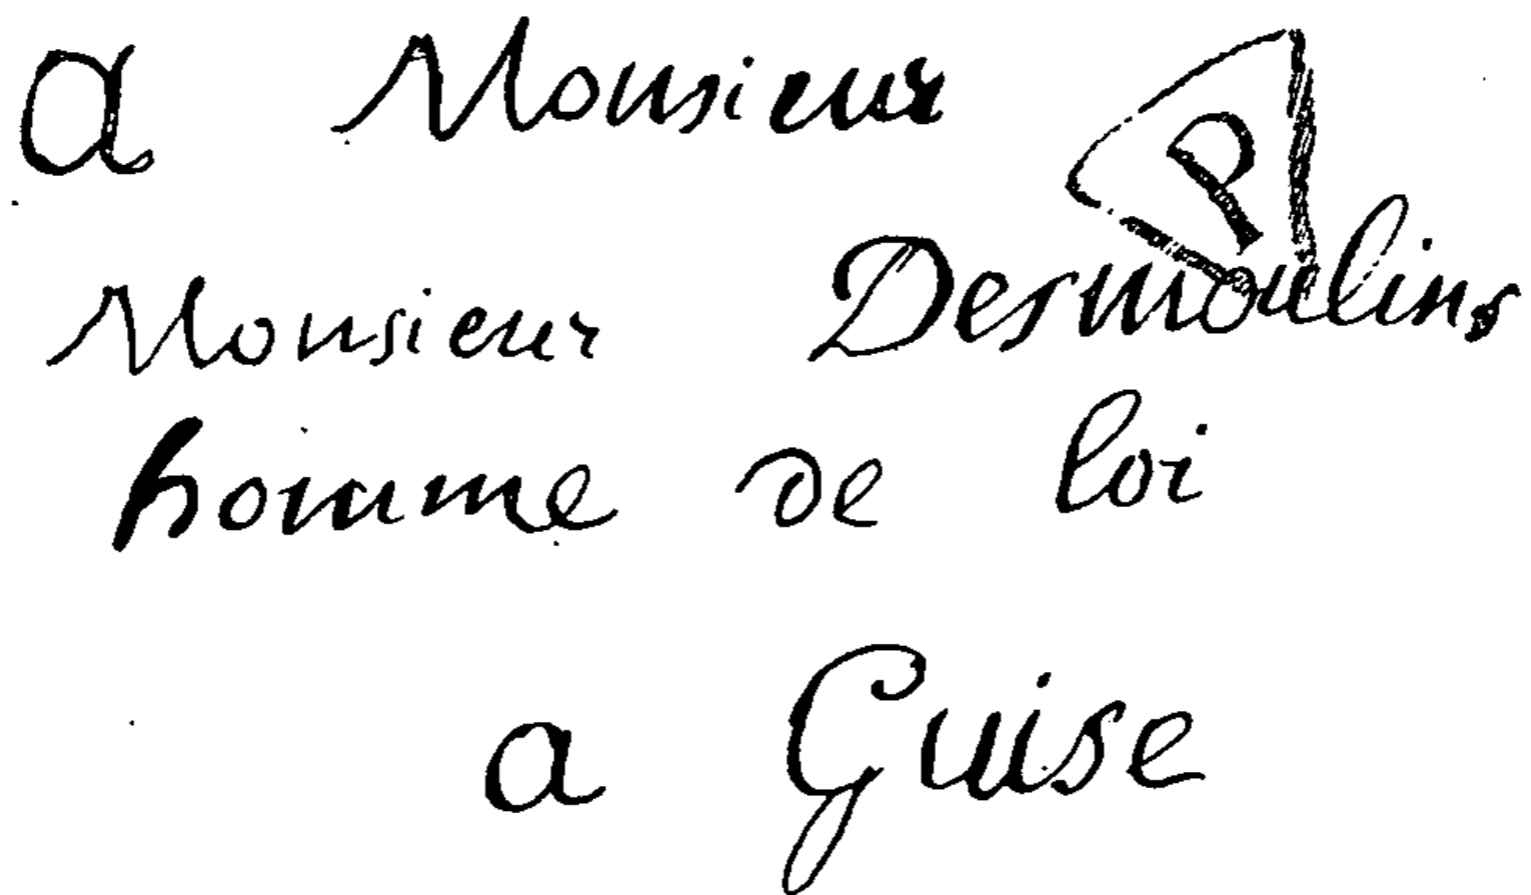 a Monsieur
P
Monsieur Desmoulins
homme de loi
a Guise